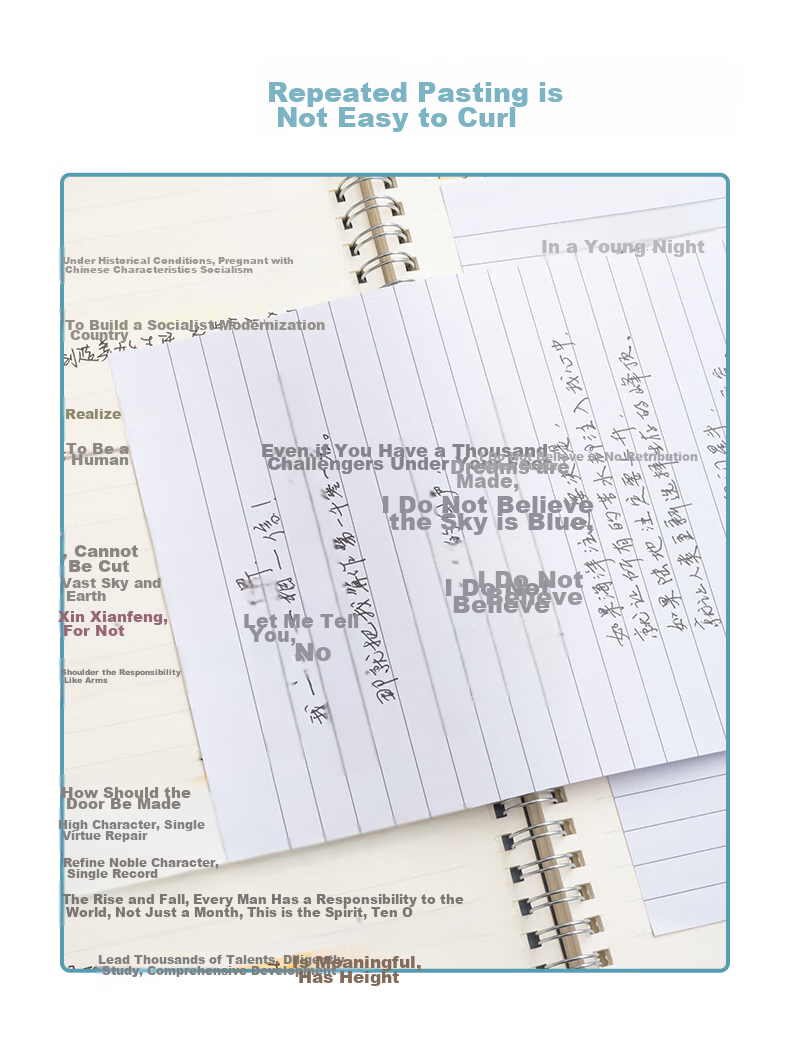 Repeated Pasting is
Not Easy to Curl
In a Young Night
Under Historical Conditions, Pregnant with
Chinese Characteristics Socialism
To Build a Socialist Modernization
Country
Realize
To Be a
Human
Even if You Have a Thousand
Challengers Under Your Feet,
Do Not Believe in No Retribution
Dreams are
Made,
I Do Not Believe
the Sky is Blue,
, Cannot
Be Cut
Vast Sky and
Earth
I Do Not
Believe
I Do Not
Believe
Xin Xianfeng,
For Not
Let Me Tell
You,
No
Shoulder the Responsibility
Like Arms
那就把我算作第一千零一名。
就让所有的苦水都注入我心中.
如果陆地注定要上升,
就让人类重新选择生存的峰顶.
How Should the
Door Be Made
High Character, Single
Virtue Repair
Refine Noble Character,
Single Record
The Rise and Fall, Every Man Has a Responsibility to the
World, Not Just a Month, This is the Spirit, Ten O
Lead Thousands of Talents, Diligently
Study, Comprehensive Development
Is Meaningful,
Has Height